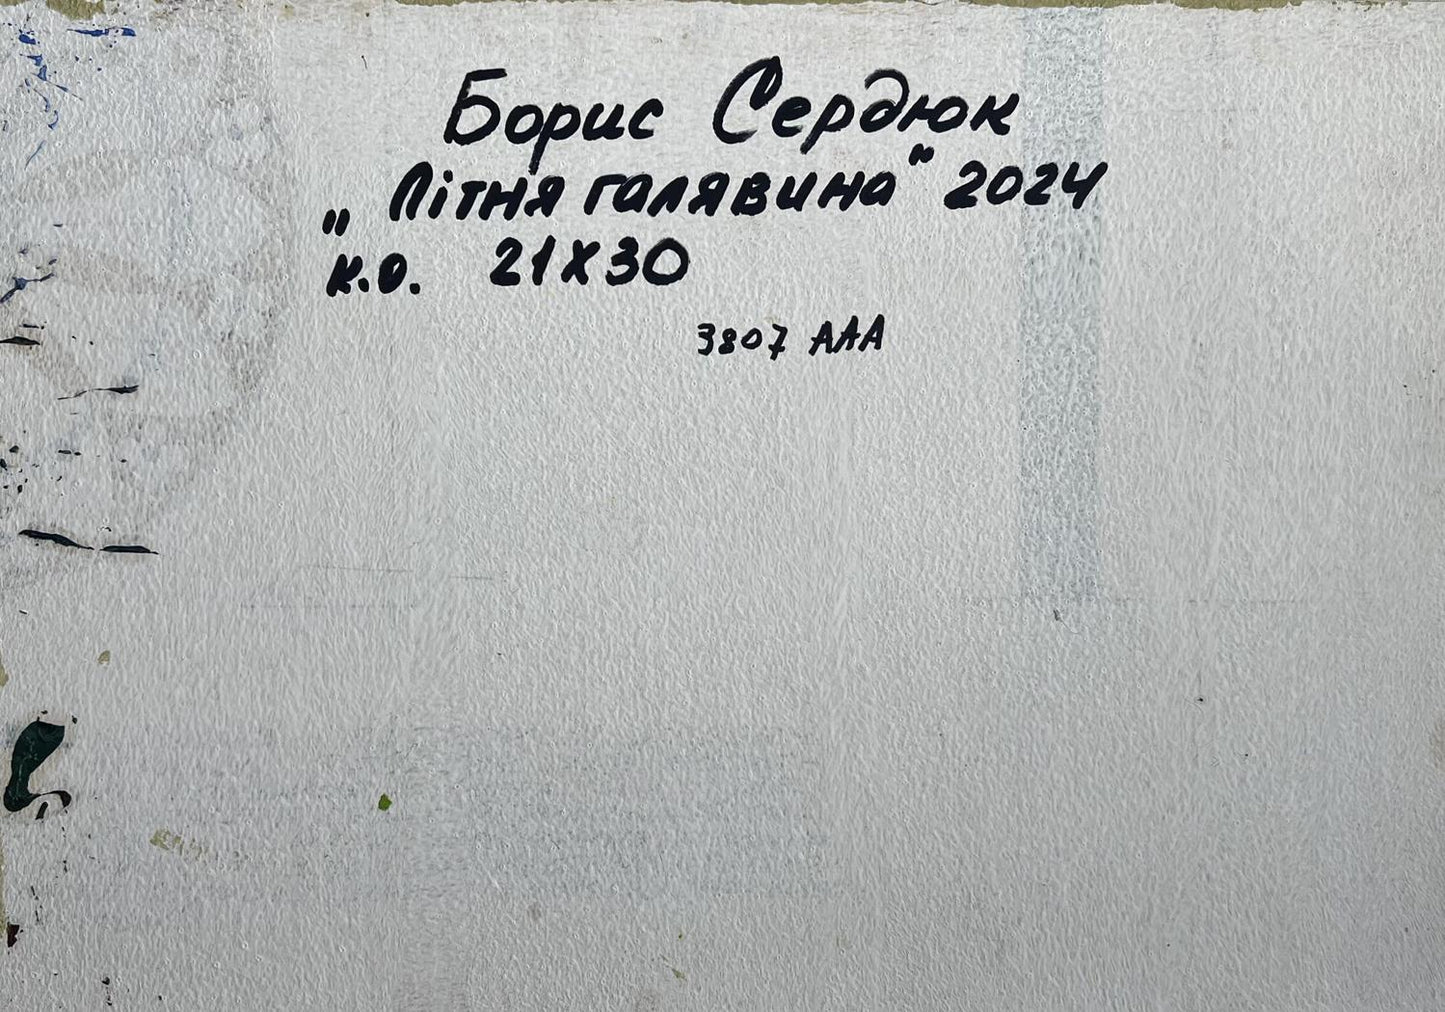 Борис Сердюк
„Літня галявина" 2024
к.о. 21x30
3807 ААА